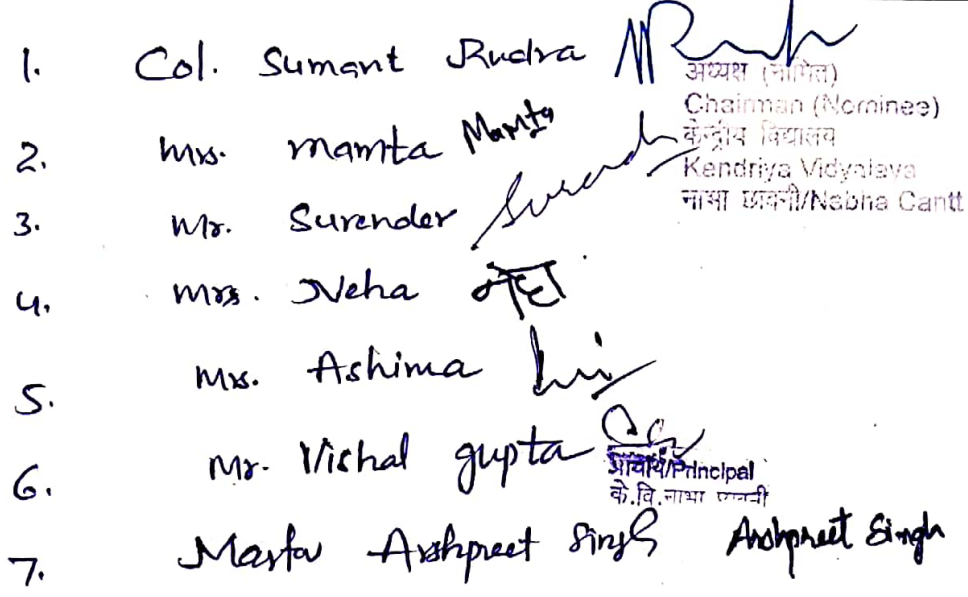 1. Col. Sumant Rudra
अध्यक्ष (नामित)
Chairman (Nominee)
केन्द्रीय विद्यालय
Kendriya Vidyalaya
नाभा छावनी/Nabha Cantt
2. Mrs. Mamta Mamta
3. Mr. Surender Surender
4. Mrs. Neha नेहा
5. Mrs. Ashima
6. Mr. Vishal gupta
प्राचार्य/Principal
के.वि.नाभा छावनी
7. Master Arshpreet Singh Arshpreet Singh